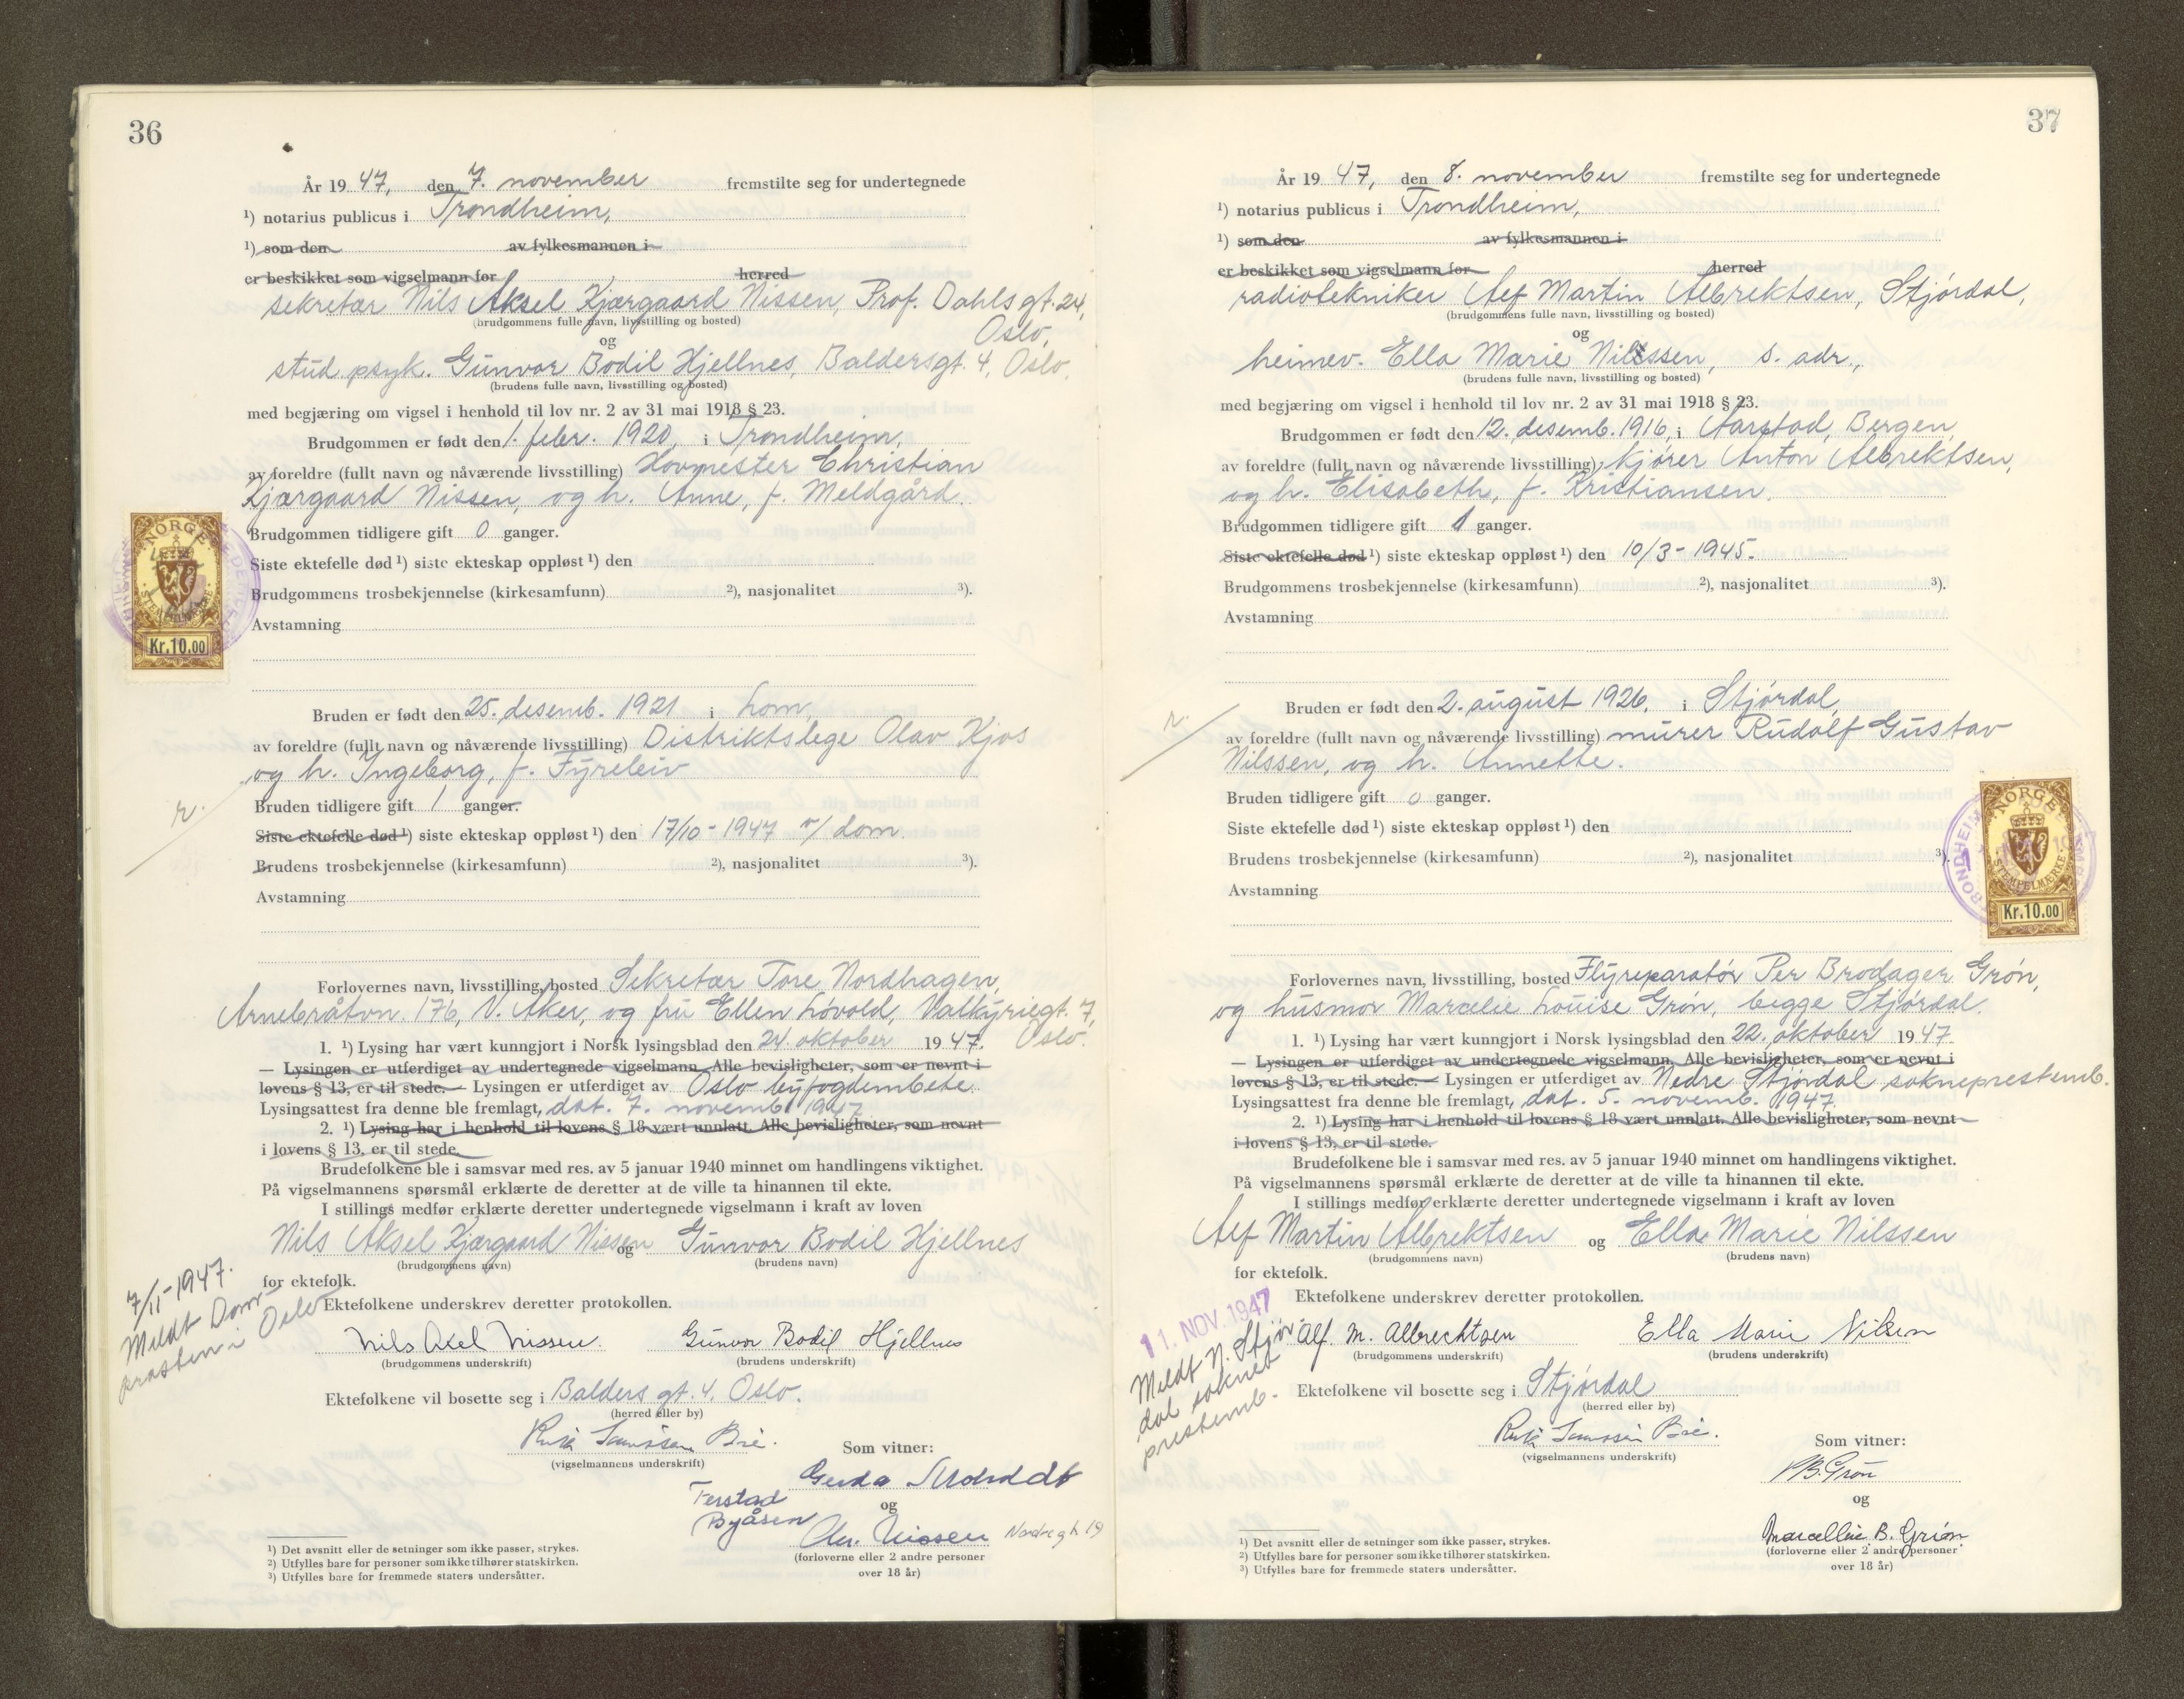 36
År 19 47, den 7. november fremstilte seg for undertegnede
¹) notarius publicus i Trondheim,
¹) som den av fylkesmannen i
er beskikket som vigselmann for herred
sekretær Nils Aksel Kjærgaard Nissen, Prof. Dahlsgt. 24,
(brudgommens fulle navn, livsstilling og bosted)
Oslo,
og
stud. psyk. Gunvor Bodil Hjellnes, Baldersgt. 4, Oslo,
(brudens fulle navn, livsstilling og bosted)
med begjæring om vigsel i henhold til lov nr. 2 av 31 mai 1918 § 23.
Brudgommen er født den 1. febr. 1920, i Trondheim,
av foreldre (fullt navn og nåværende livsstilling) Hovmester Christian
Kjærgaard Nissen, og h. Anne, f. Meldgård.
Brudgommen tidligere gift 0 ganger.
Siste ektefelle død ¹) siste ekteskap oppløst ¹) den
Brudgommens trosbekjennelse (kirkesamfunn) ²), nasjonalitet ³).
Avstamning
NORGE
STEMPELMERKE
Kr.10.00
Bruden er født den 25. desemb. 1921 i Lom,
av foreldre (fullt navn og nåværende livsstilling) Distriktslege Olav Kjos
og h. Ingeborg, f. Fyreleiv
Bruden tidligere gift 1 ganger.
r.
Siste ektefelle død ¹) siste ekteskap oppløst ¹) den 17/10-1947 v/ dom.
Brudens trosbekjennelse (kirkesamfunn) ²), nasjonalitet ³).
Avstamning
Forlovernes navn, livsstilling, bosted Sekretær Tore Nordhagen,
Arnebråtvn. 176, V. Aker, og fru Ellen Løvold, Valkyriegt. 7,
Oslo.
1. ¹) Lysing har vært kunngjort i Norsk lysingsblad den 24. oktober 19 47.
— Lysingen er utferdiget av undertegnede vigselmann. Alle bevisligheter, som er nevnt i
lovens § 13, er til stede. — Lysingen er utferdiget av Oslo byfogdembete.
Lysingsattest fra denne ble fremlagt, dat. 7. novemb. 1947
2. ¹) Lysing har i henhold til lovens § 18 vært unnlatt. Alle bevisligheter, som nevnt
i lovens § 13, er til stede.
Brudefolkene ble i samsvar med res. av 5 januar 1940 minnet om handlingens viktighet.
På vigselmannens spørsmål erklærte de deretter at de ville ta hinannen til ekte.
I stillings medfør erklærte deretter undertegnede vigselmann i kraft av loven
Nils Aksel Kjærgaard Nissen og Gunvor Bodil Hjellnes
(brudgommens navn) (brudens navn)
for ektefolk.
7/11-1947.
Meldt Dom-
prosten i Oslo
Ektefolkene underskrev deretter protokollen.
Nils Axel Nissen. Gunvor Bodil Hjellnes
(brudgommens underskrift) (brudens underskrift)
Ektefolkene vil bosette seg i Balders gt. 4. Oslo.
(herred eller by)
(vigselmannens underskrift)
Som vitner:
Gerda
og
Ferstad
Byåsen
Chr. Nissen Nordregt 19
(forloverne eller 2 andre personer
over 18 år)
¹) Det avsnitt eller de setninger som ikke passer, strykes.
²) Utfylles bare for personer som ikke tilhører statskirken.
³) Utfylles bare for fremmede staters undersåtter.
37
År 19 47, den 8. november fremstilte seg for undertegnede
¹) notarius publicus i Trondheim,
¹) som den av fylkesmannen i
er beskikket som vigselmann for herred
radiotekniker Alf Martin Albrektsen, Stjørdal,
(brudgommens fulle navn, livsstilling og bosted)
og
heimev. Ella Marie Nilssen, s. adr.,
(brudens fulle navn, livsstilling og bosted)
med begjæring om vigsel i henhold til lov nr. 2 av 31 mai 1918 § 23.
Brudgommen er født den 12. desemb. 1916, i Aarstad, Bergen,
av foreldre (fullt navn og nåværende livsstilling) kjører Anton Albrektsen,
og h. Elisabeth, f. Kristiansen.
Brudgommen tidligere gift 1 ganger.
Siste ektefelle død ¹) siste ekteskap oppløst ¹) den 10/3-1945.
Brudgommens trosbekjennelse (kirkesamfunn) ²), nasjonalitet ³).
Avstamning
r.
Bruden er født den 2. august 1926, i Stjørdal,
av foreldre (fullt navn og nåværende livsstilling) murer Rudolf Gustav
Nilssen, og h. Annette.
Bruden tidligere gift 0 ganger.
Siste ektefelle død ¹) siste ekteskap oppløst ¹) den
Brudens trosbekjennelse (kirkesamfunn) ²), nasjonalitet ³).
Avstamning
NORGE
STEMPELMERKE
Kr.10.00
Forlovernes navn, livsstilling, bosted Flyreparatør Per Brodager Grøn,
og husmor Marcelie Louise Grøn, begge Stjørdal.
1. ¹) Lysing har vært kunngjort i Norsk lysingsblad den 22. oktober 19 47.
— Lysingen er utferdiget av undertegnede vigselmann. Alle bevisligheter, som er nevnt i
lovens § 13, er til stede. — Lysingen er utferdiget av Nedre Stjørdal sokneprestemb.
Lysingsattest fra denne ble fremlagt, dat. 5. novemb. 1947.
2. ¹) Lysing har i henhold til lovens § 18 vært unnlatt. Alle bevisligheter, som nevnt
i lovens § 13, er til stede.
Brudefolkene ble i samsvar med res. av 5 januar 1940 minnet om handlingens viktighet.
På vigselmannens spørsmål erklærte de deretter at de ville ta hinannen til ekte.
I stillings medfør erklærte deretter undertegnede vigselmann i kraft av loven
Alf Martin Albrektsen og Ella Marie Nilssen
(brudgommens navn) (brudens navn)
for ektefolk.
Ektefolkene underskrev deretter protokollen.
11. NOV. 1947
Meldt N. Stjør-
dal sokne
prestemb.
Alf. M. Albrechtsen Ella Marie Nilsen
(brudgommens underskrift) (brudens underskrift)
Ektefolkene vil bosette seg i Stjørdal
(herred eller by)
(vigselmannens underskrift)
Som vitner:
P.B. Grøn
og
Marcellie B. Grøn.
(forloverne eller 2 andre personer
over 18 år)
¹) Det avsnitt eller de setninger som ikke passer, strykes.
²) Utfylles bare for personer som ikke tilhører statskirken.
³) Utfylles bare for fremmede staters undersåtter.